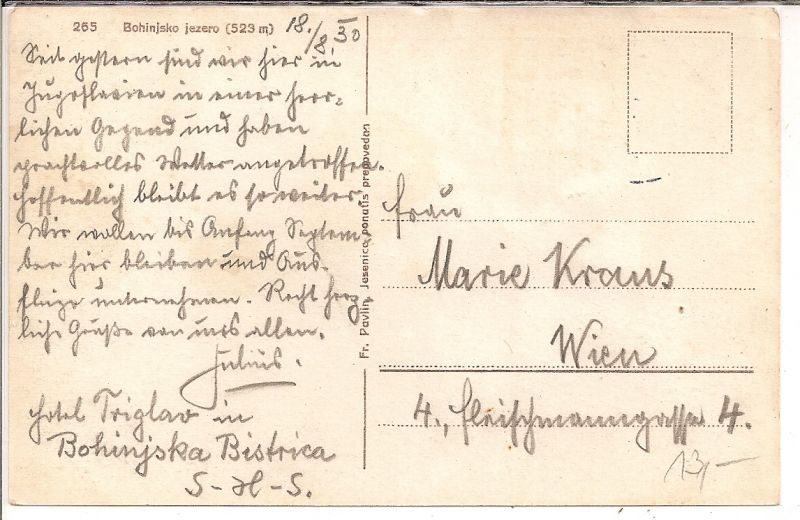 265 Bohinjsko jezero (523 m) 18./8. 30
Seit gestern sind wir hier in
Jugoslavien in einer herr-
lichen Gegend und haben
prachtvolles Wetter angetroffen.
Hoffentlich bleibt es so weiter.
Wir wollen bis Anfang Septem-
ber hier bleiben und Aus-
flüge unternehmen. Recht herz-
liche Grüße von uns allen.
Julius.
Hotel Triglav in
Bohinjska Bistrica
S-H-S.
Fr. Pavlin, Jesenice, ponatis prepoveden
Frau
Marie Kraus
Wien
4., Fleischmanngasse 4.
13,-